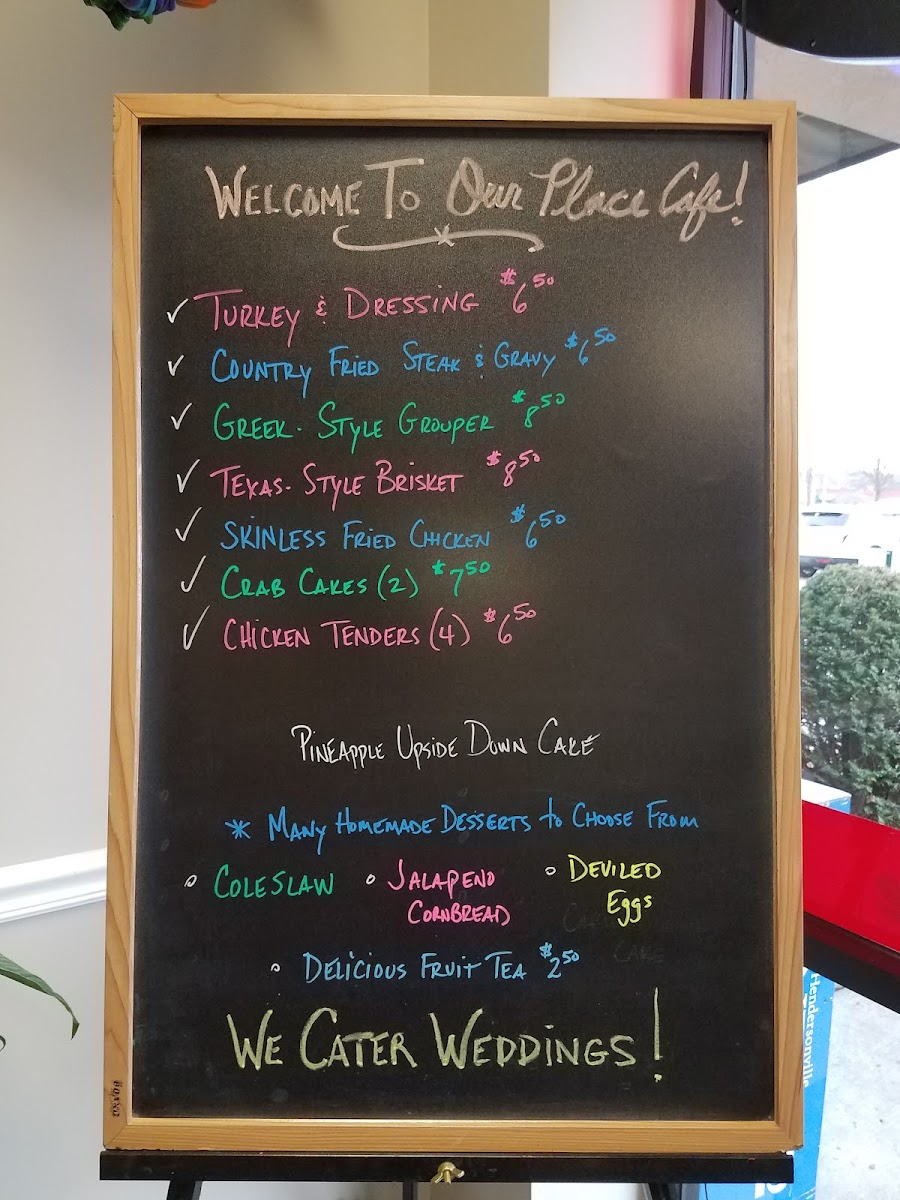 WELCOME TO Our Place Cafe!
✓ TURKEY & DRESSING $6.50
✓ COUNTRY FRIED STEAK & GRAVY $6.50
✓ GREEK-STYLE GROUPER $8.50
✓ TEXAS-STYLE BRISKET $8.50
✓ SKINLESS FRIED CHICKEN $6.50
✓ CRAB CAKES (2) $7.50
✓ CHICKEN TENDERS (4) $6.50
PINEAPPLE UPSIDE DOWN CAKE
* MANY HOMEMADE DESSERTS to CHOOSE FROM
° COLESLAW ° JALAPENO ° DEVILED
CORNBREAD Eggs
° DELICIOUS FRUIT TEA $2.50
WE CATER WEDDINGS!
Hendersonville